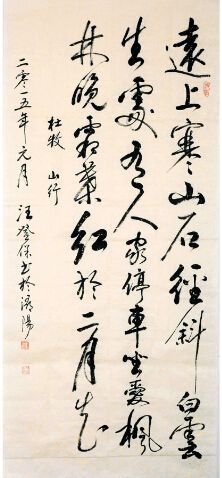 遠上寒山石徑斜白雲
生處有人家停車坐愛楓
林晚霜葉紅於二月花
杜牧 山行
二零一五年元月 汪登保书於潯陽